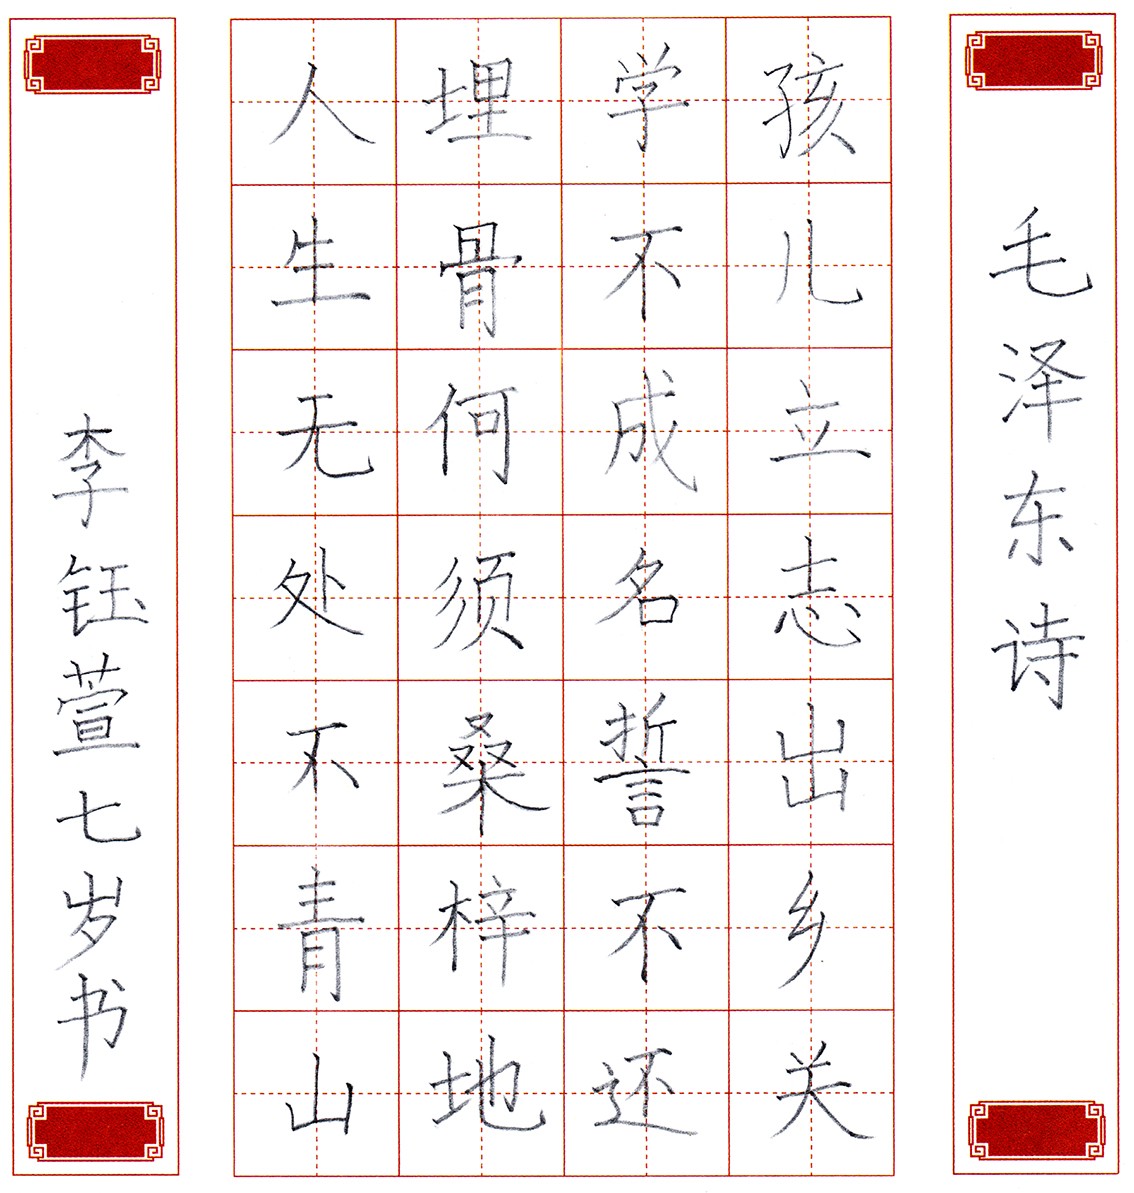 毛泽东诗
孩儿立志出乡关
学不成名誓不还
埋骨何须桑梓地
人生无处不青山
李钰萱七岁书